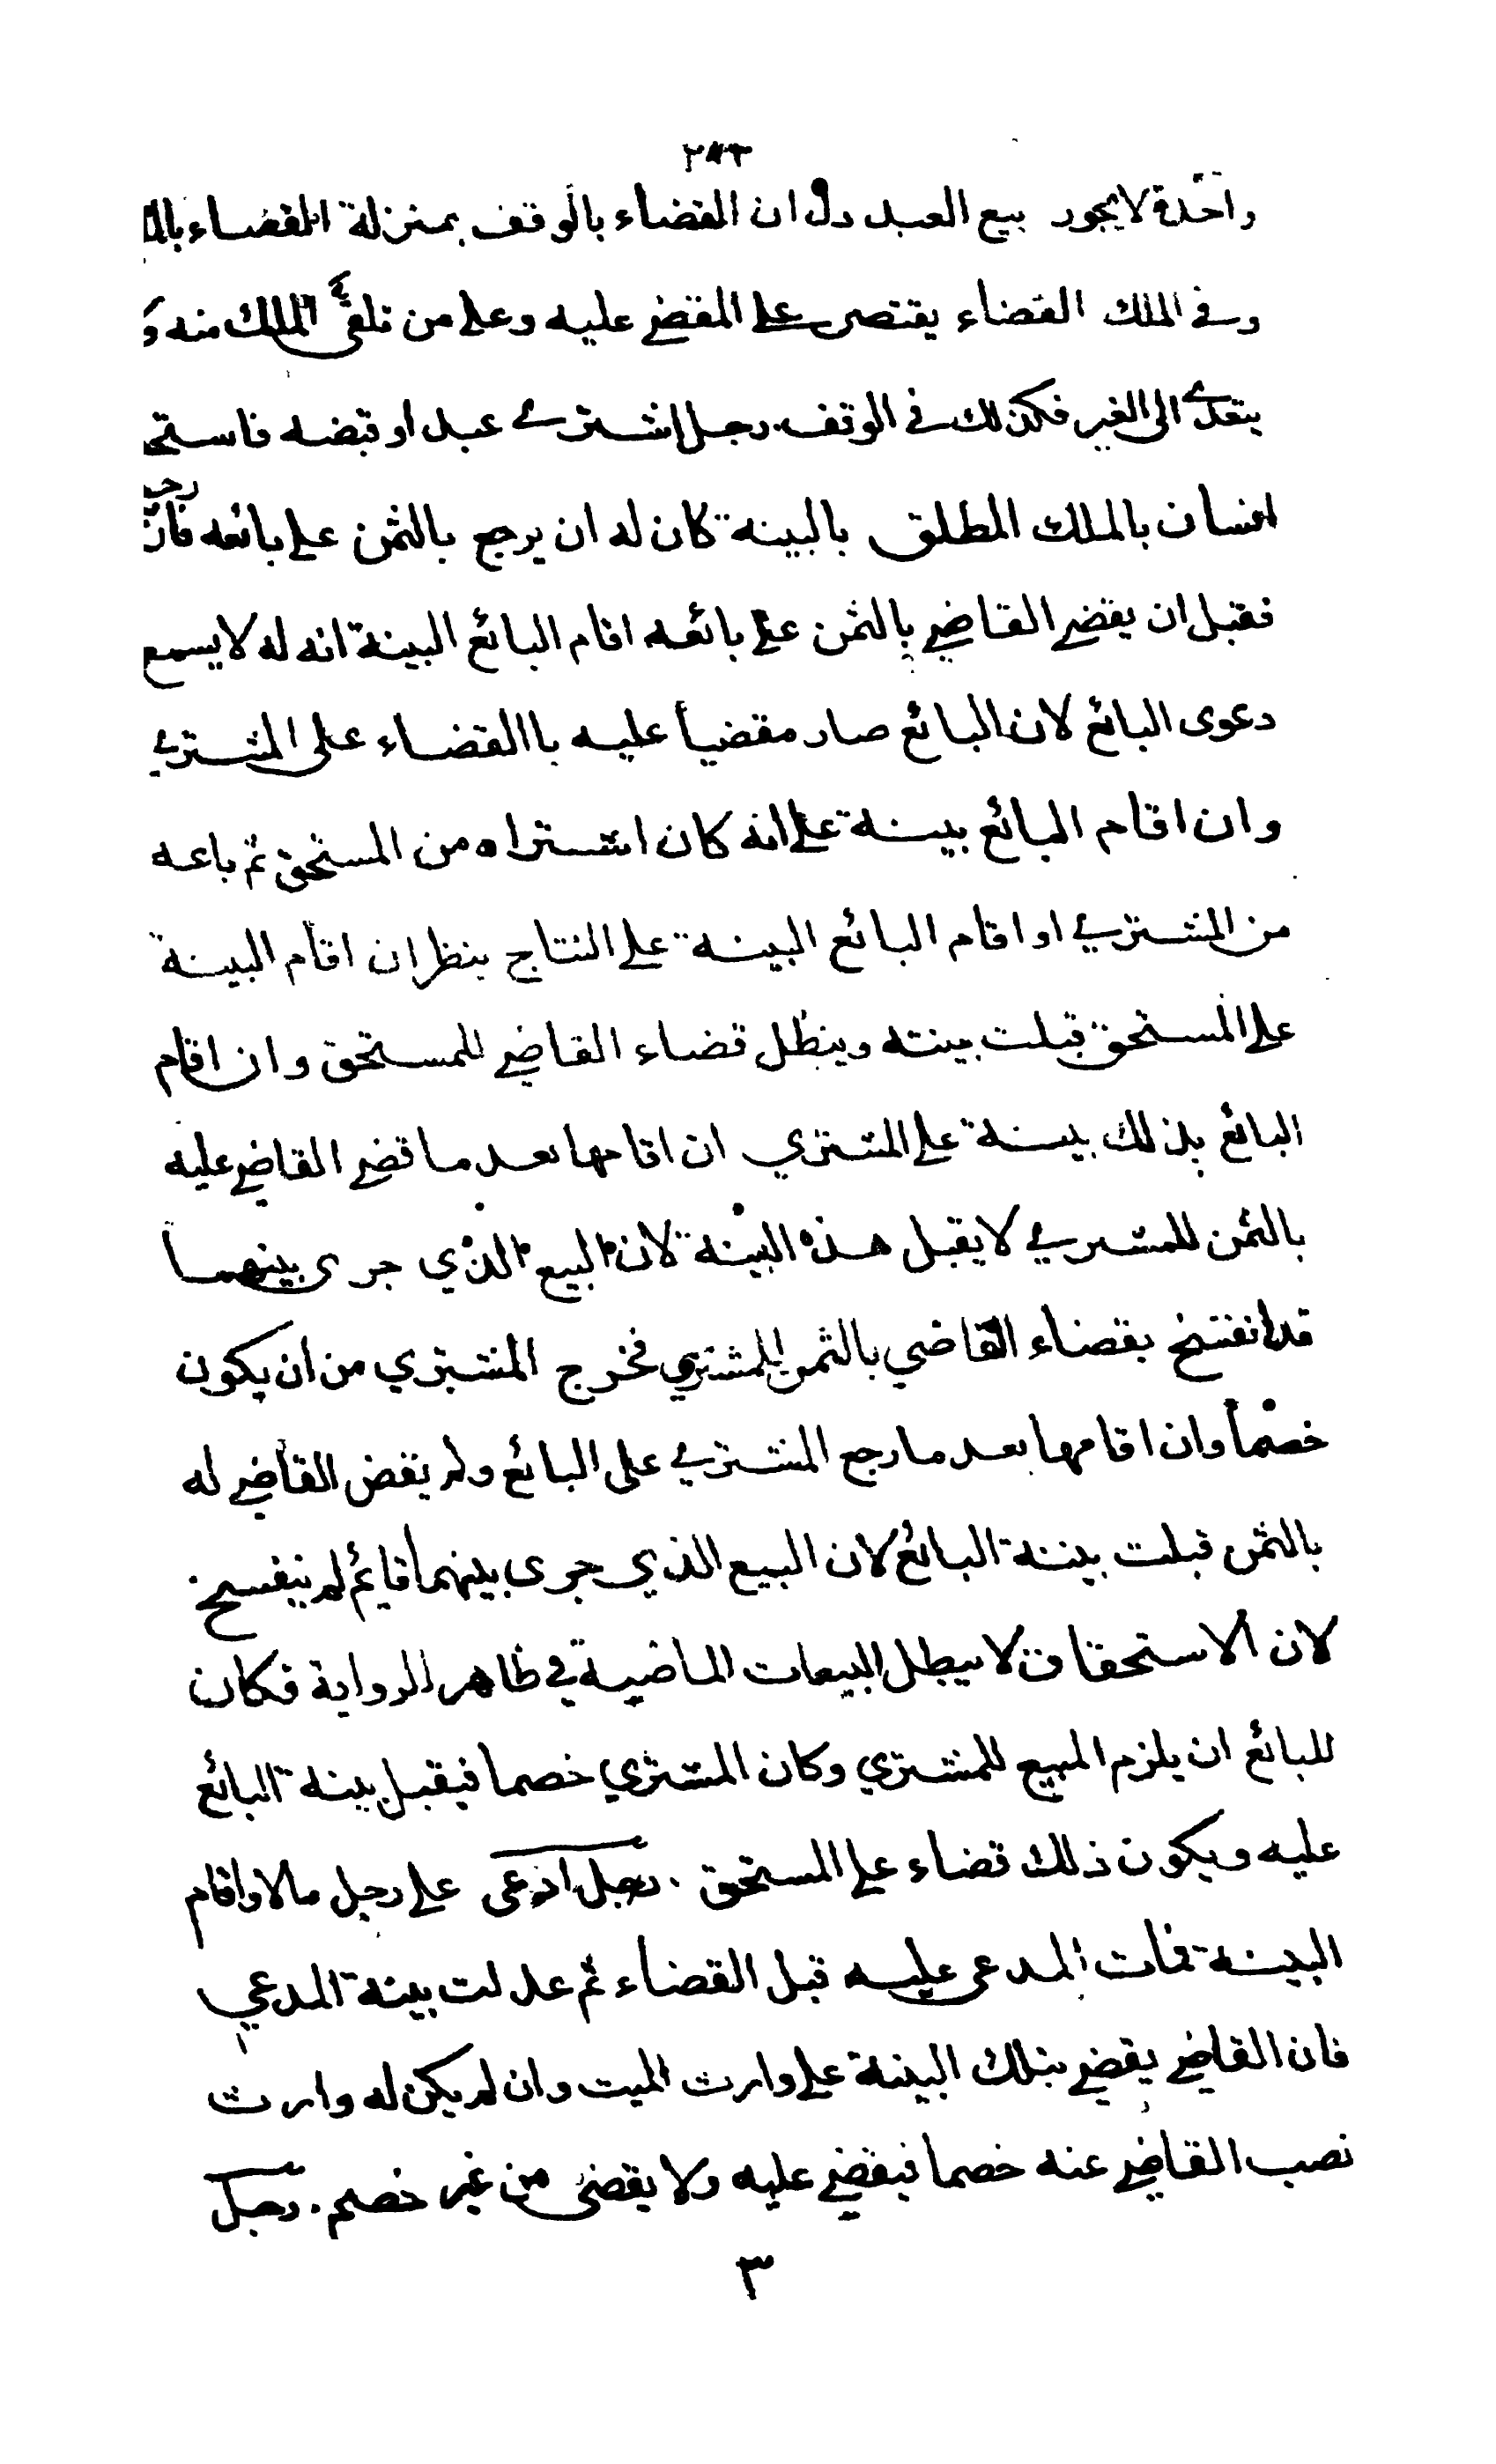 واحدة لا يجوز بيع العبد دل ان القضاء بالوقف بمنزلة القضاء
وفي الملك القضاء يقتصر على المقضي عليه وعلى من تلقى الملك منه
يتعدى الى الغير فكذلك في الوقف. رجل اشترى عبدا وقبضه
انسان بالملك المطلق بالبينة كان له ان يرجع بالثمن على بائعه فان رجع
فقبل ان يقضي القاضي بالثمن على بائعه اقام البائع البينة انه له لا يسمع
دعوى البائع لان البائع صار مقضياً عليه باالقضاء على المشتري
وان اقام البائع بينة على انه كان اشتراه من المستحق ثم باعه
من المشتري او اقام البائع البينة على النتاج ينظر ان اقام البينة
على المستحق قبلت بينته ويبطل قضاء القاضي للمستحق وان اقام
البائع بذلك بينة على المشتري ان اقامها بعد ما قضي القاضي عليه
بالثمن للمشتري لا يقبل هذه البينة لان البيع الذي جرى بينهما
قد انفسخ بقضاء القاضي بالثمن للمشتري فخرج المشتري من ان يكون
خصماً وان اقامها بعد ما رجع المشتري على البائع ولم يقض القاضي له
بالثمن قبلت بينة البائع لان البيع الذي جرى بينهما قائم لم ينفسخ
لان الاستحقاق لا يبطل البيعات الماضية في ظاهر الرواية فكان
للبائع ان يلزم المبيع للمشتري وكان المشتري خصما فيقبل بينة البائع
عليه ويكون ذلك قضاء على المستحق . رجل ادعى على رجل مالا واقام
البينة فمات المدعى عليه قبل القضاء ثم عدلت بينة المدعي
فان القاضي يقضي بتلك البينة على وارث الميت وان لم يكن له وارث
نصب القاضي عنه خصما فيقضي عليه ولا يقضى من غير خصم . رجل
٣